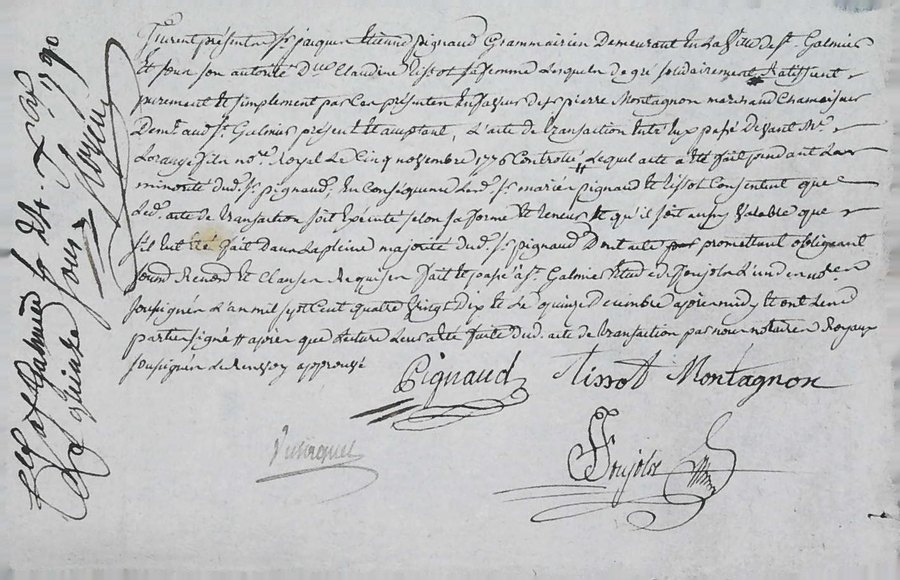 Furent présents Sr jacques Etienne Pignaud Grammairien Demeurant En La Ville de St. Galmier
Et sous son autorité Dlle Claudine Tissot sa femme Lesquels de gré solidairement Ratiffient
purement Et simplement par Ces présentes En faveur de Sr Pierre Montagnon marchand Chamoiseur
Demt. aud. St. Galmier présent Et acceptant, L'acte de transaction Entre Eux passé Devant Me
Lorange fils nore. Royal Le Cinq novembre 1776 Controllé, Lequel acte a été fait pendant La
minorité dud. Sr pignaud, En Conséquence Lesd. Srs mariés Pignaud Et tissot Consentent que
Led. acte de transaction soit Exécuté selon sa forme Et teneur Et qu'il soit aussy Valable que
s'il Eut Eté fait Dans La pleine majorité dud. Sr Pignaud Dont acte promettant obligeant
soumd Renond Et Clauses Requises fait Et passé à St. Galmier Etude de Soujolz L'un des nores
soussignés L'an mil sept Cent quatre Vingt Dix Et Le quinze décembre après midy Et ont Les d
parties signé # après que Lecture Leurs a été faite dud. acte de transaction par nous notaires Royaux
soussignés Le Renvoy approuvé
Pignaud Tissot Montagnon
Soujolz
Clé à St Galmier le
Le quinze 1790